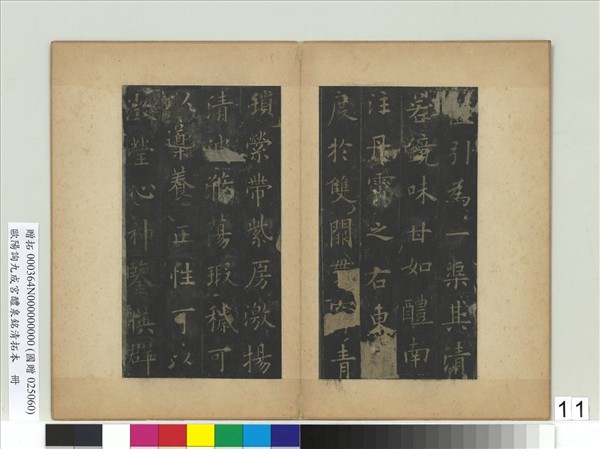 引為一渠其清
若鏡味甘如醴南
注丹霄之右東
度於雙闕青
瑣縈帶紫房激揚
清波滌蕩瑕穢可
以導養正性可以
澂瑩心神鑒映群
贈拓 000364N000000000 (國贈 025060)
歐陽詢九成宮醴泉銘清拓本 冊
11